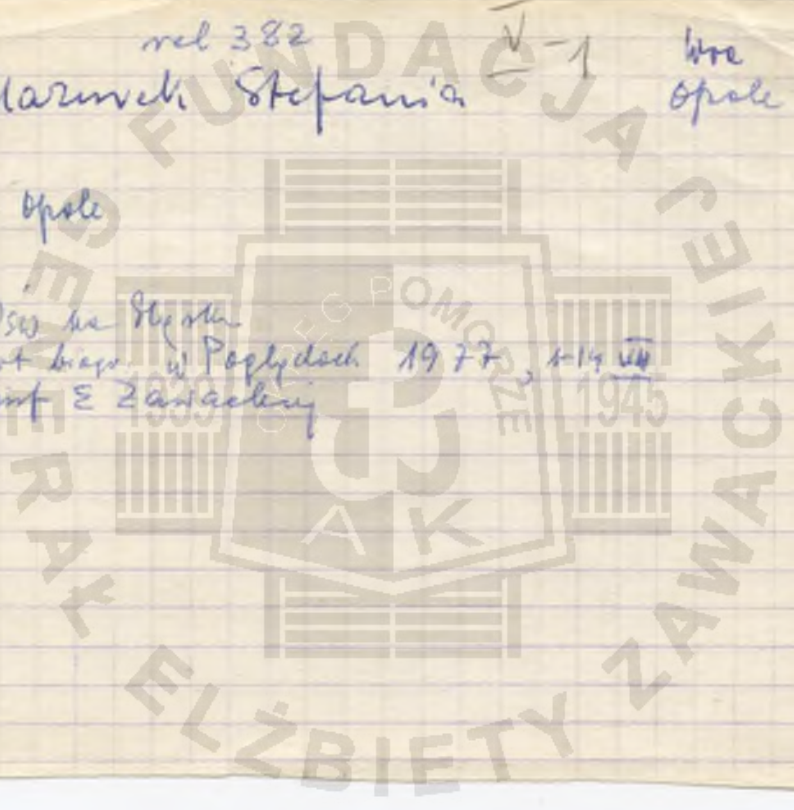 rel 382 V-1 Wro
Mazurek Stefania Opole
Opole
na Śląsku
art biogr. w Poglądach 1977, 1-14 VII
inf E Zawackiej
FUNDACJA GENERAŁ ELŻBIETY ZAWACKIEJ
OKRĘG POMORZE
1939 1945
AK